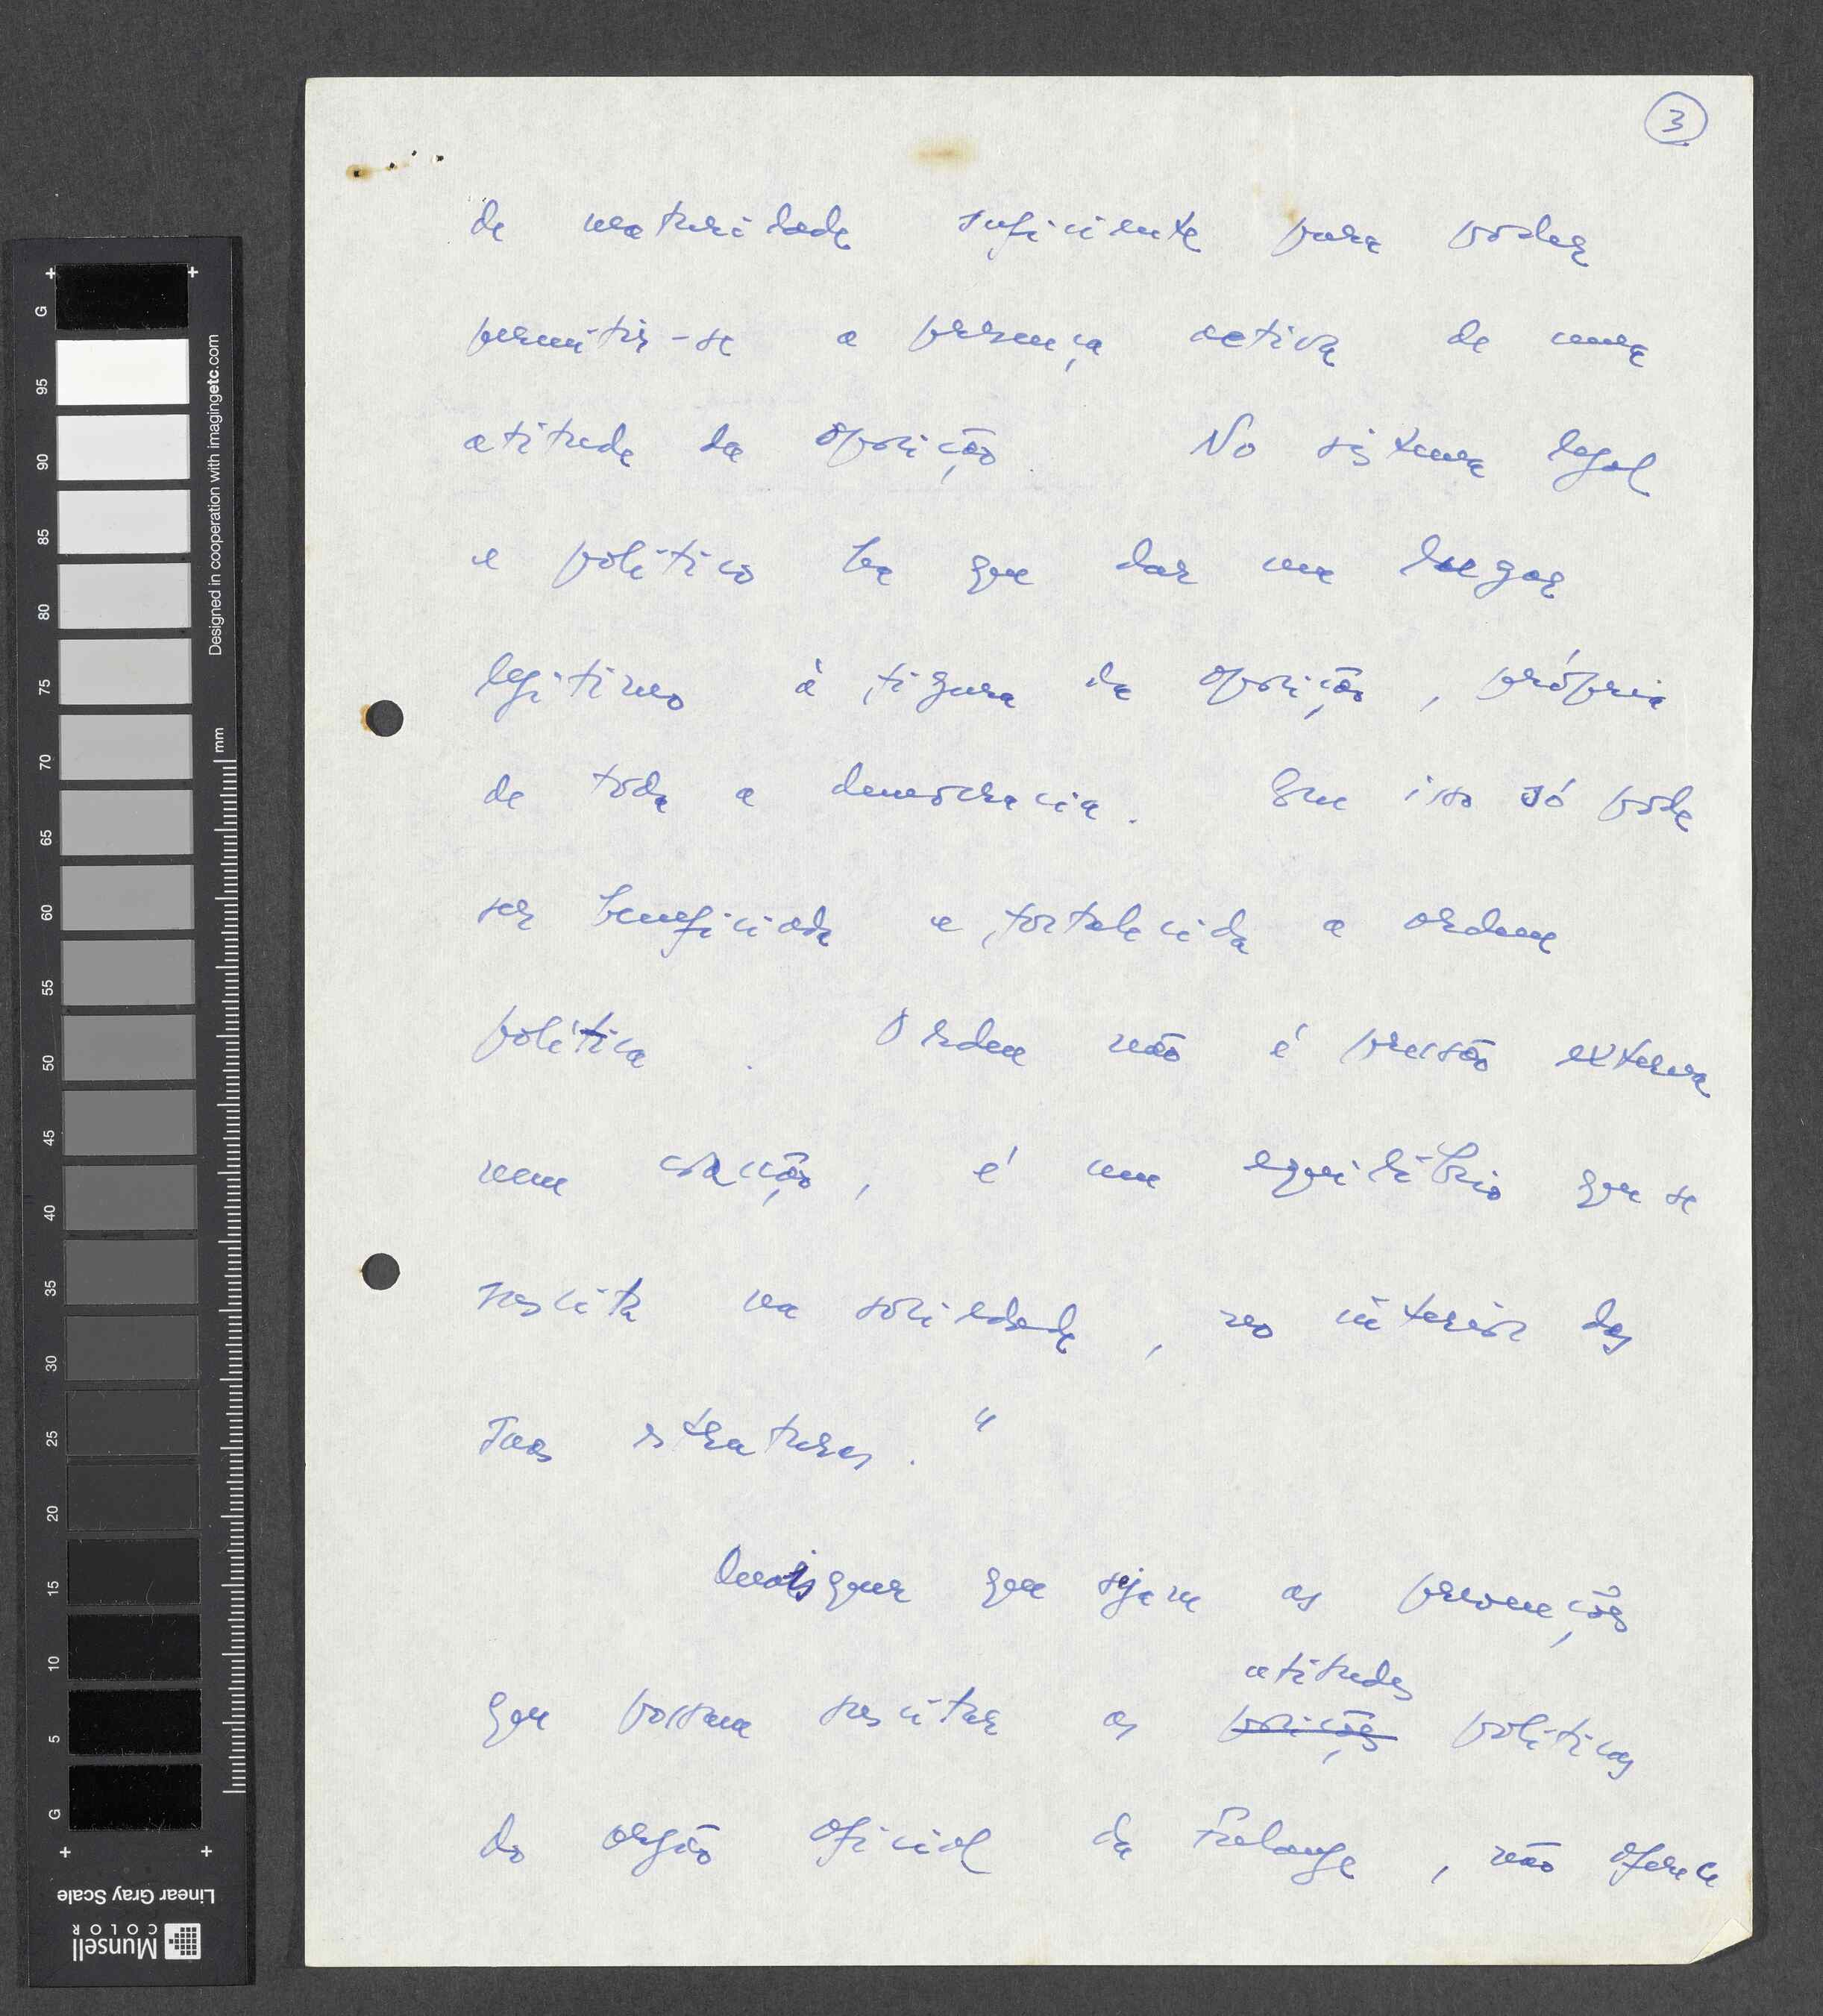 3
de maturidade suficiente para poder
permitir-se a presença activa de uma
atitude da oposição. No sistema legal
e político há que dar um lugar
legitimo à figura da oposição, própria
de toda a democracia. Em isso só pode
ser beneficiada e fortalecida a ordem
política. Ordem não é pressão externa
nem coacção, é um equilíbrio que se
suscita na sociedade, no interior das
suas estruturas."
Quaisquer que sejam as prevenções
atitudes
que possam suscitar as posições políticas
do orgão oficial da Falange, não oferece
G
95
90
85
80
75
70
65
60
55
50
45
40
35
30
25
20
15
10
5
G
mm
Designed in cooperation with imagingetc.com
Linear Gray Scale
Munsell
COLOR